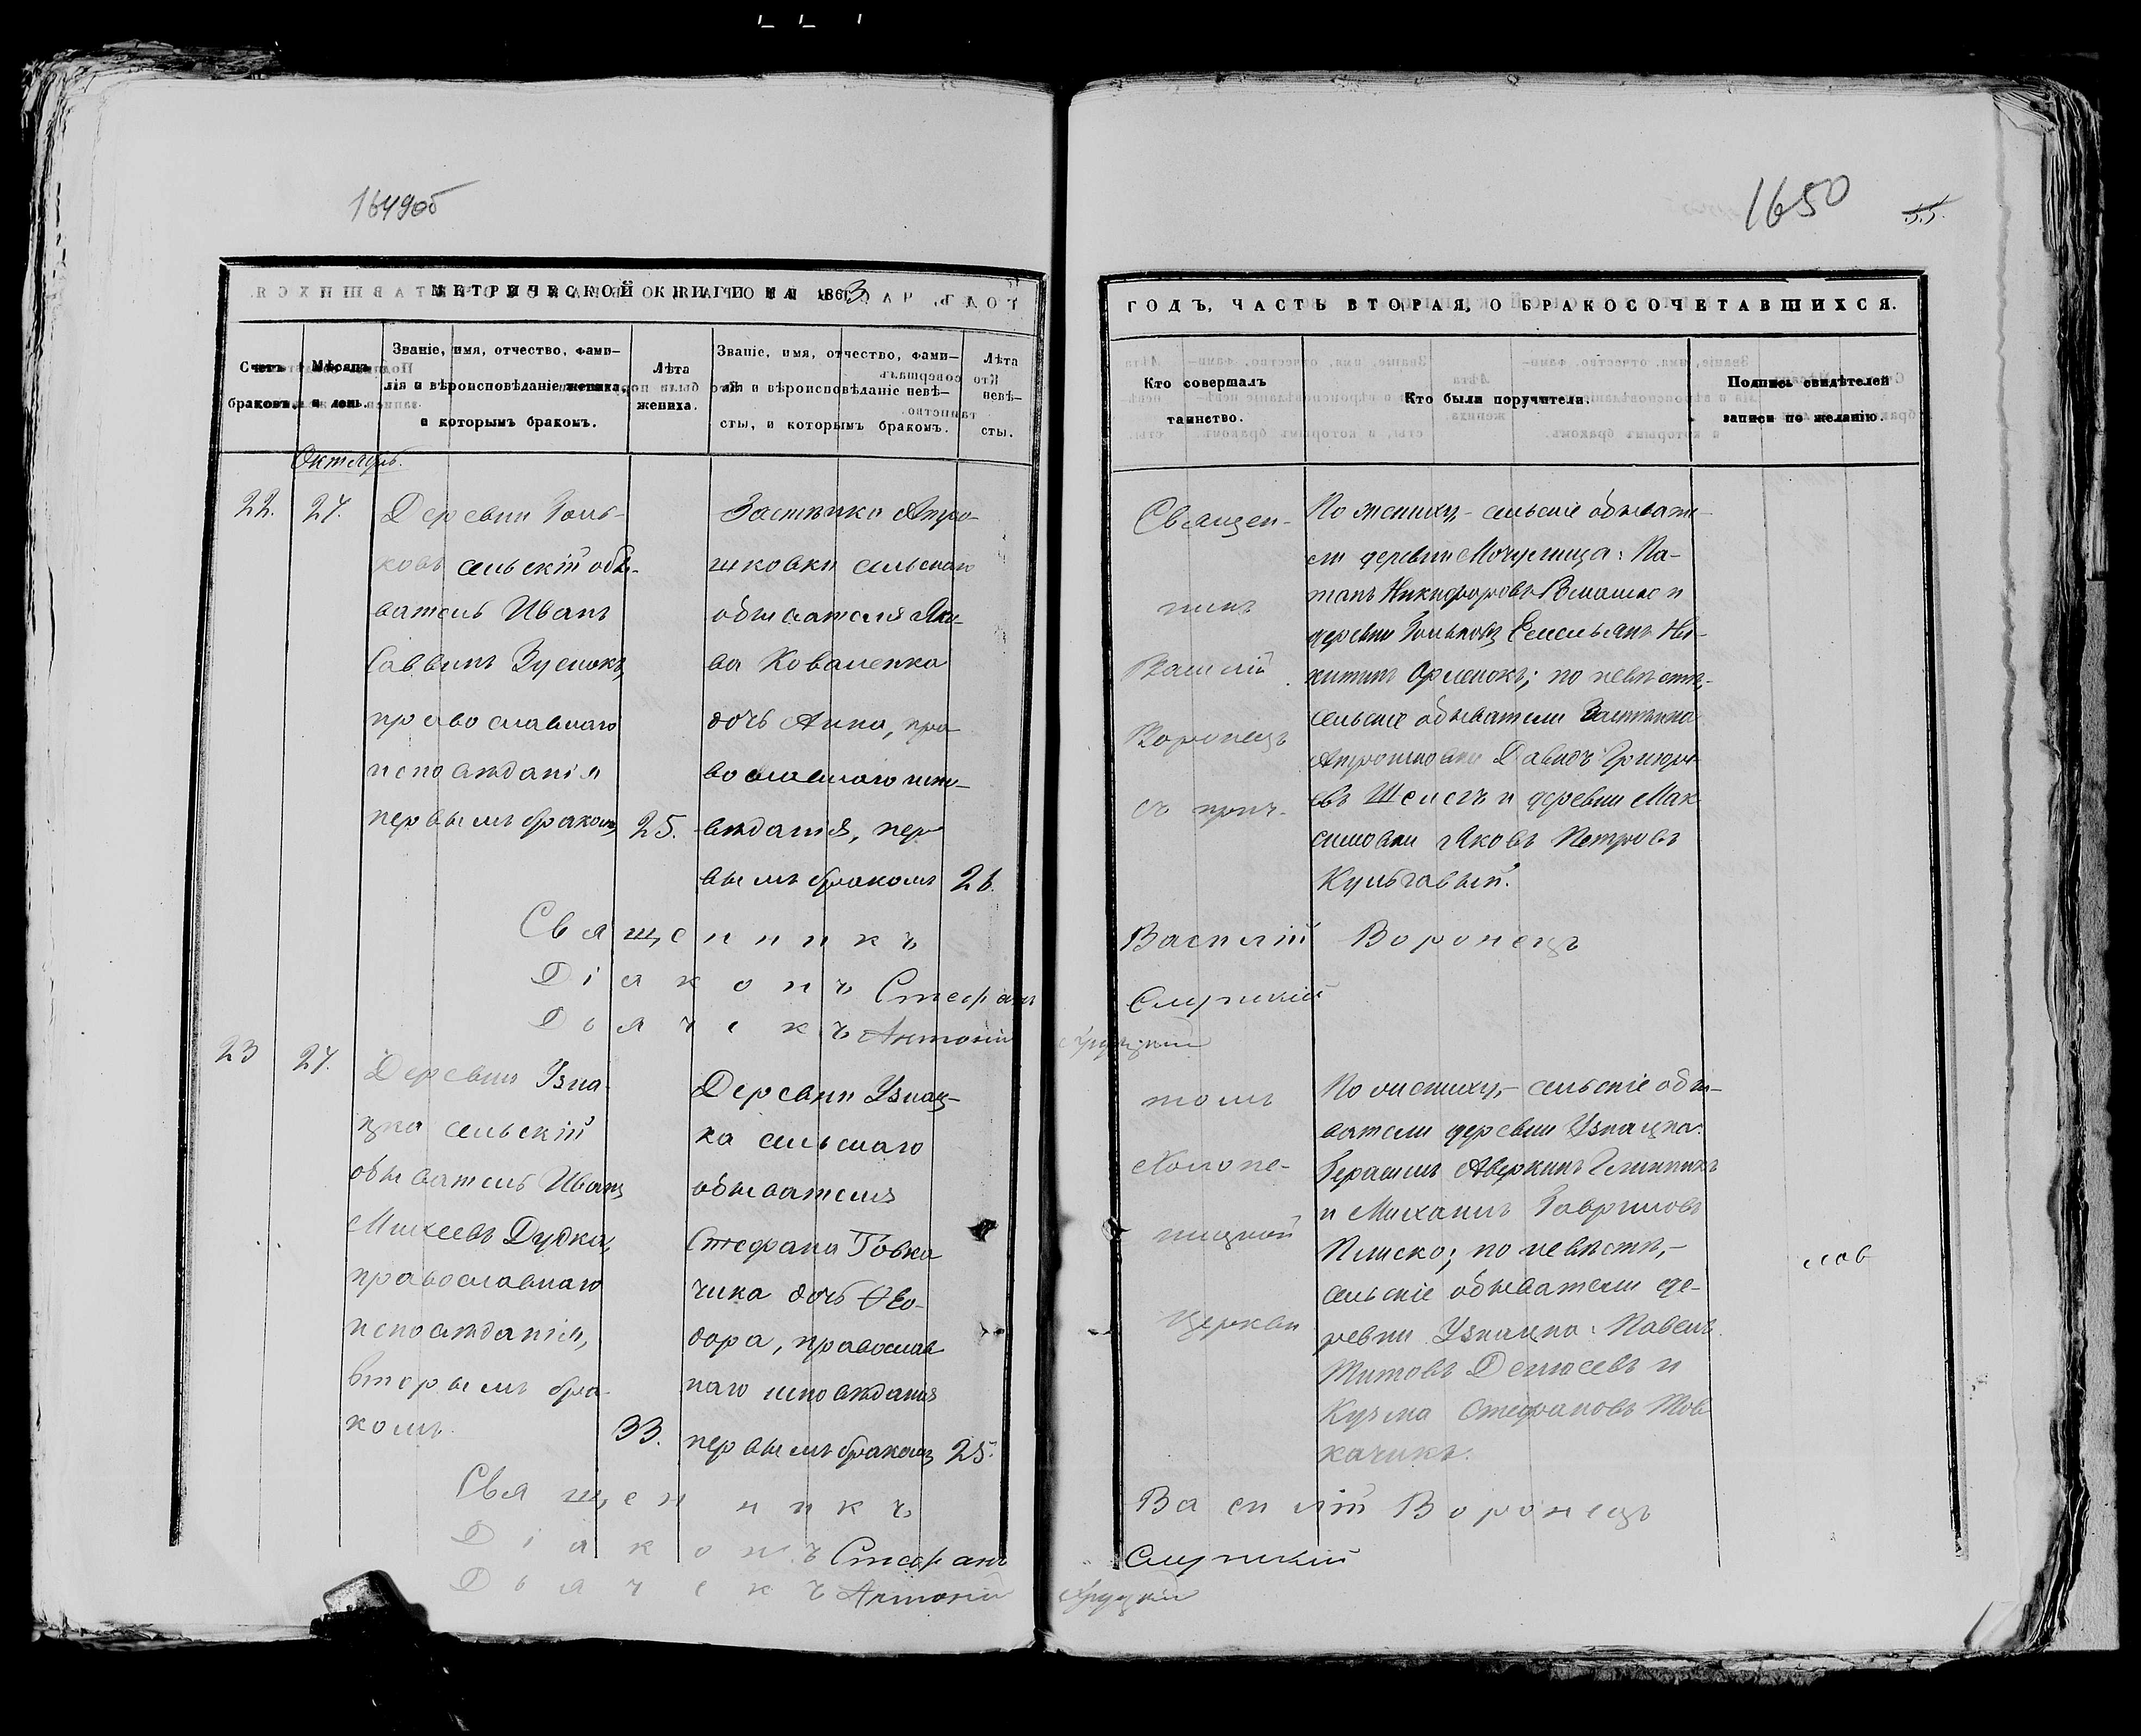 1649об
МЕТРИЧЕСКОЙ КНИГИ НА 1863
Счетъ браковъ.
Мѣсяцъ и день.
Званіе, имя, отчество, фами-
лія и вѣроисповѣданіе жениха,
и которымъ бракомъ.
Лѣта
жениха.
Званіе, имя, отчество, фами-
лія и вѣроисповѣданіе невѣ-
сты, и которымъ бракомъ.
Лѣта
невѣ-
сты.
Октябрь.
22.
27.
Деревни
сельскій обы-
ватель Иванъ
Саввинъ
православнаго
исповѣданія
первымъ бракомъ
25.
Застѣнка Андро-
шковки сельскаго
обывателя Яко-
ва Коваленка
дочь Анна, пра-
вославнаго испо-
вѣданія, пер-
вымъ бракомъ
21.
Священникъ
Діаконъ Стефанъ
Дьячекъ Антоній
23
27.
Деревни Узна-
цка сельскій
обыватель Иванъ
Михеевъ Дудка,
православнаго
исповѣданія,
вторымъ бра-
комъ.
33.
Деревни Узнац-
ка сельскаго
обывателя
Стефана Товка-
чика дочь Ѳео-
дора, православ-
наго исповѣданія
первымъ бракомъ
25.
Священникъ
Діаконъ Стефанъ
Дьячекъ Антоній
1650
55.
ГОДЪ, ЧАСТЬ ВТОРАЯ, О БРАКОСОЧЕТАВШИХСЯ.
Кто совершалъ
таинство.
Кто были поручители.
Подпись свидѣтелей
записи по желанію.
Священ-
никъ
Василій
Воронецъ
съ прич-
По женихѣ,- сельскіе обывате-
ли деревни Мочулища: По-
тапъ Никифоровъ и
деревни Емельянъ Ни-
китинъ Орленокъ; по невѣстѣ,-
сельскіе обыватели Застѣнка
Давидъ Григорь-
евъ Шелегъ и деревни Мак-
симовки Яковъ Петровъ
Кульгавый.
Василій Воронецъ
Слупскій
томъ
Холопе-
ницкой
Церкви
По женихѣ,- сельскіе обы-
ватели деревни Узнацка:
Герасимъ Аверкинъ
и Михаилъ Гавриловъ
по невѣстѣ,-
сельскіе обыватели де-
ревни Узнацка: Павелъ
Титовъ и
Кузма Стефановъ Тов-
качикъ.
Василій Воронецъ
Слупскій